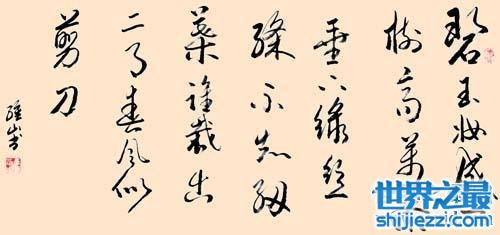 碧玉妝成
樹高萬
垂下綠絲
絛不知細
葉誰裁出
二月春風似
剪刀
世界之最
shijiezzj.com